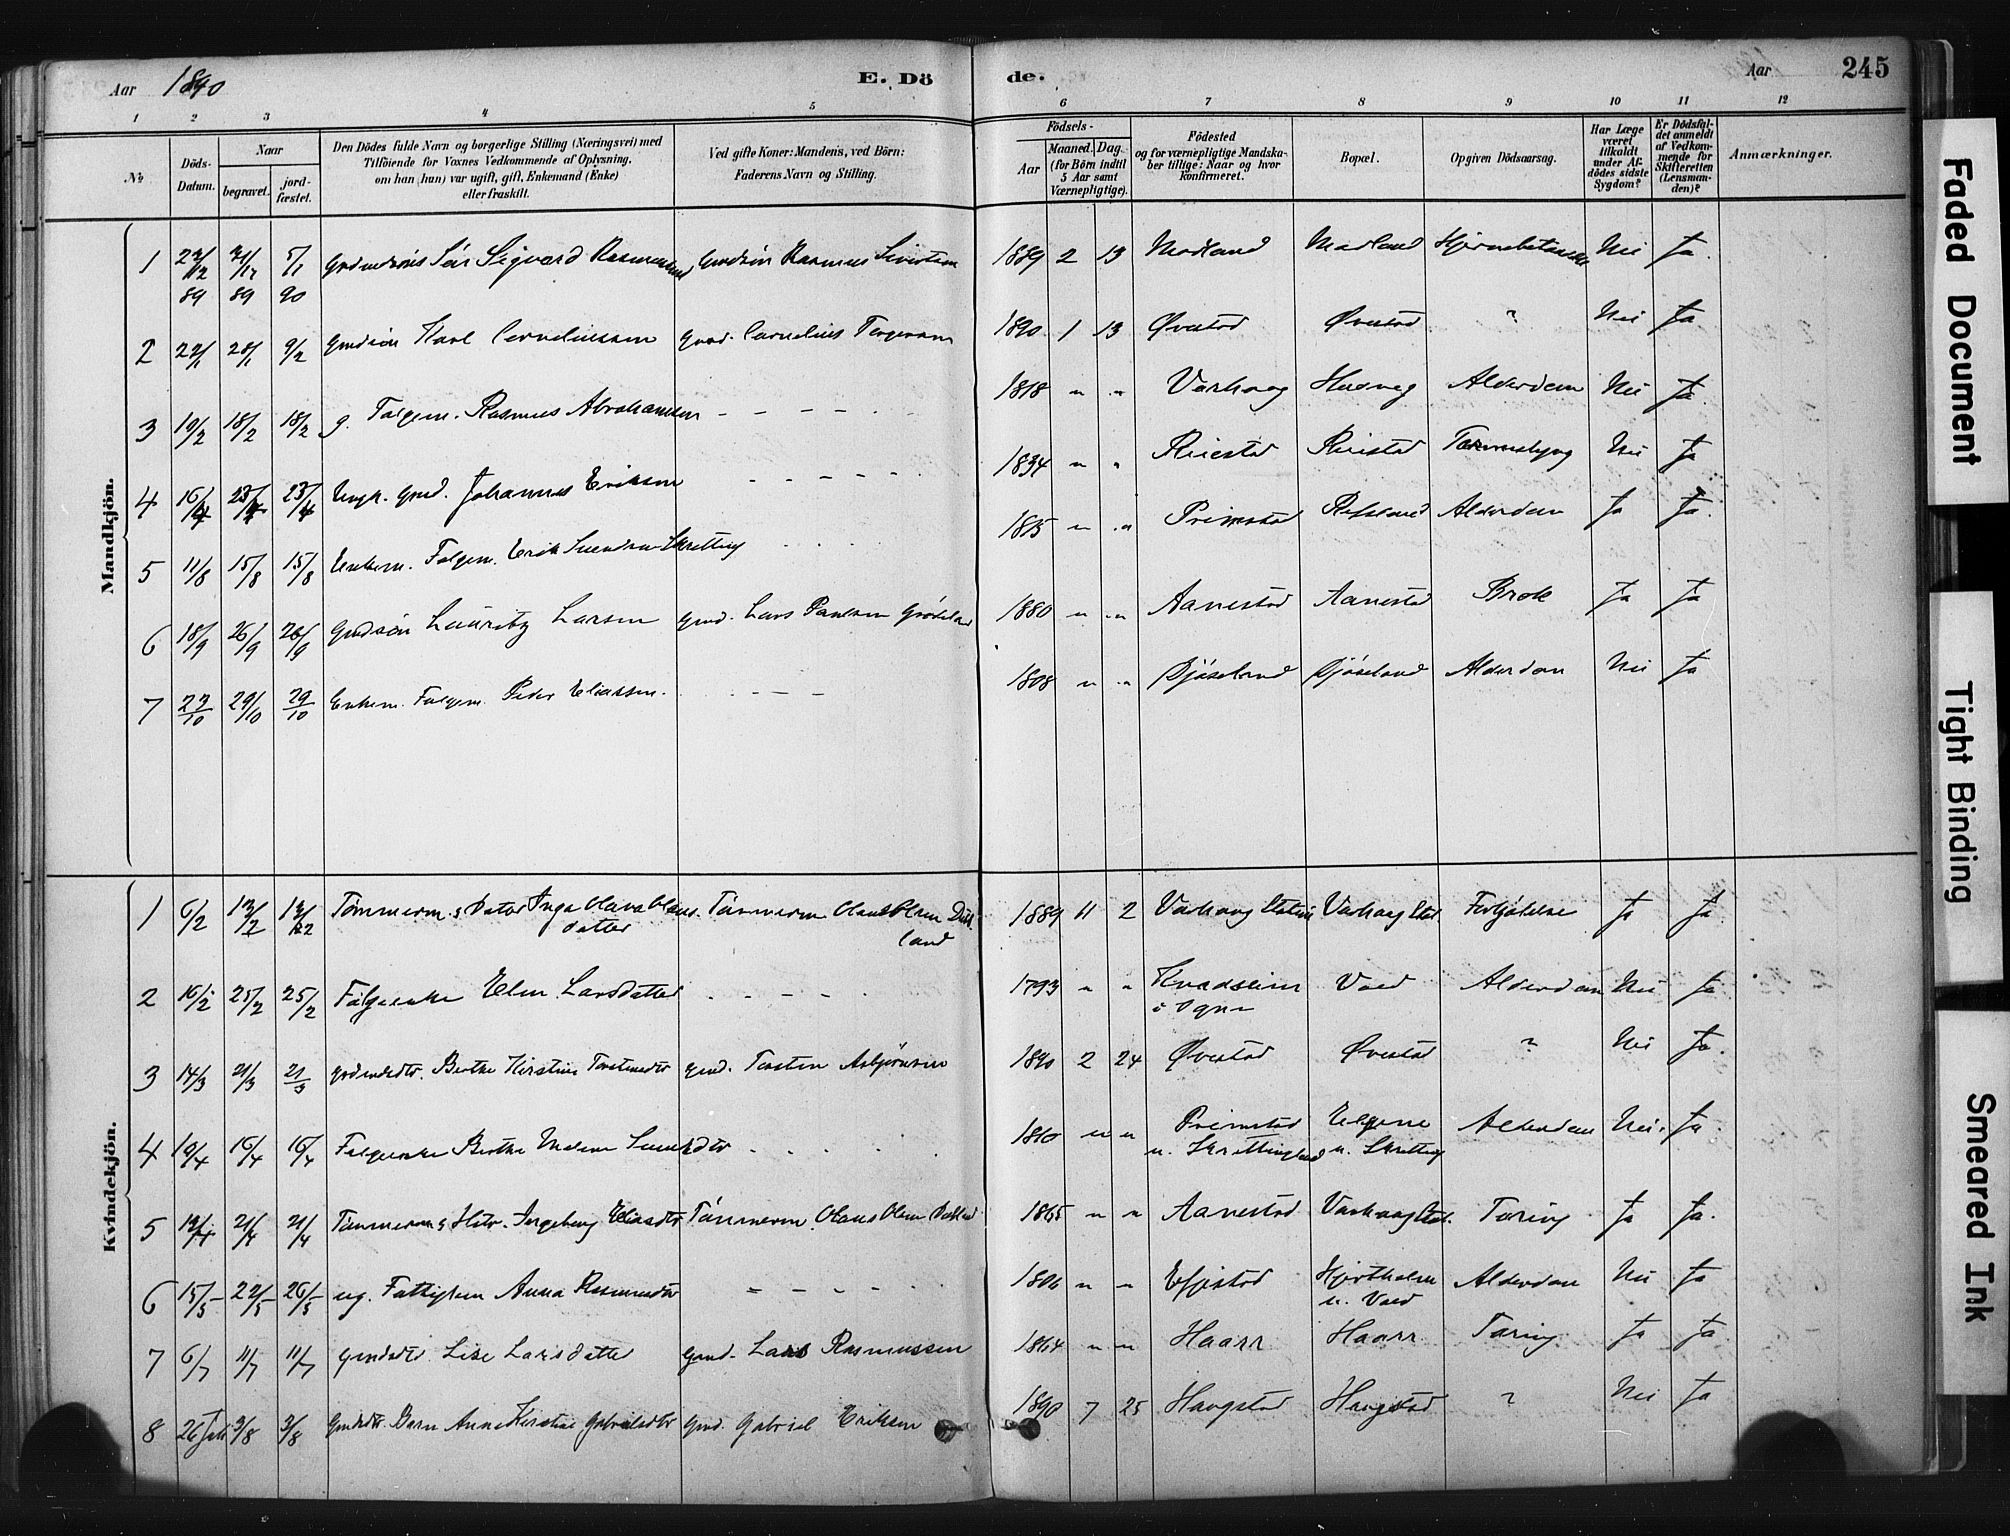 Aar 1890 E. Dö de. Aar 245
1 2 3 4 5 6 7 8 9 10 11 12
№
Döds-Datum.
Naar
begravet.
jord-fæstet.
Den Dödes fulde Navn og borgerlige Stilling (Næringsvei) med
Tilföiende for Voxnes Vedkommende af Oplysning,
om han (hun) var ugift, gift, Enkemand (Enke)
eller fraskilt.
Ved gifte Koner: Mandens, ved Börn:
Faderens Navn og Stilling.
Födsels-
Aar
Maaned. Dag
(for Börn indtil
5 Aar samt
Værnepligtige).
Födested
og for værnepligtige Mandska-
ber tillige: Naar og hvor
konfirmeret.
Bopæl.
Opgiven Dödsaarsag.
Har Læge
været
tilkaldt
under Af-
dödes sidste
Sygdom?
Er Dödsfal-
det anmeldt
af Vedkom-
mende for
Skifteretten
(Lensman-
den)?
Anmærkninger.
Mandkjön.
1 22/12 89 31/12 89 5/1 90 Sigvard Rasmussen Rasmus Sivertsen 1889 2 13 Modland Modland Nei Ja
2 22/1 28/1 9/2 Gmdsön Karl Corneliussen Gmd. Cornelius 1890 1 13 Øvestad Øvestad ? Nei Ja
3 10/2 18/2 18/2 g. Folgem. Rasmus Abrahamsen - - - - 1818 " " Varhaug Husveg Alderdom Nei Ja
4 16/4 23/4 23/4 Gmd. Johannes Eriksen - - - - - 1834 " " Riiestad Riiestad Nei Ja
5 11/8 15/8 15/8 Enkem. Folgem. Erik Svendsen Skretting 1815 " " Primstad Alderdom Ja Ja
6 18/9 26/9 26/9 Gmdsön Lauritz Larsen Gmd. Lars Paulsen 1880 " " Aanestad Aanestad Brok Ja Ja
7 22/10 29/10 29/10 Enkem. Folgem. Peder Eliassen. - - - - 1808 " " Djöseland Djöseland Alderdom Nei Ja
Kvindekjön.
1 6/2 12/2 12/2 Tømmerm.s Dater Inga Olava Olaus- Tømmerm. Olaus Olsen Dub- 1889 11 2 Varhaug Station Varhaug Stat. Forkjölelse Ja Ja
datter land
2 16/2 25/2 25/2 Folgeenke Elen Larsdatter - - - - 1793 " " Kvadseim Voed Alderdom Nei Ja
i Ogne
3 14/3 21/3 21/3 Berthe Kirstine Torstensdtr Gmd. Torsten Asbjörnsen 1890 2 24 Øvestad Øvestad ? Nei Ja.
4 10/4 16/4 16/4 Folgeenke Berthe Malene 1810 " " Primstad Elgene Alderdom Nei. Ja
u. Skrettingland u. Skretting
5 12/4 21/4 21/4 Tømmerm.s Hstr. Ingeborg Eliasdtr Tømmerm. Olaus Olsen 1865 " " Aanestad Varhaug Stat. Tæring Ja Ja.
6 15/5 22/5 26/5 ug. Fattiglem Anna Rasmusdtr - - - - - 1806 " " Alderdom Nei Ja
u. Voed
7 6/7 11/7 11/7 Gmdsdtr Lise Larsdatter Gmd. Lars Rasmussen 1864 " " Haarr Haarr Tæring Ja Ja
8 26 Juli 3/8 3/8 Gmdsdtr. Barn Anne Kirstine Gabrielsdtr Gmd. Gabriel Eriksen 1890 7 25 Haugstad Haugstad ? Nei Ja
Faded Document
Tight Binding
Smeared Ink